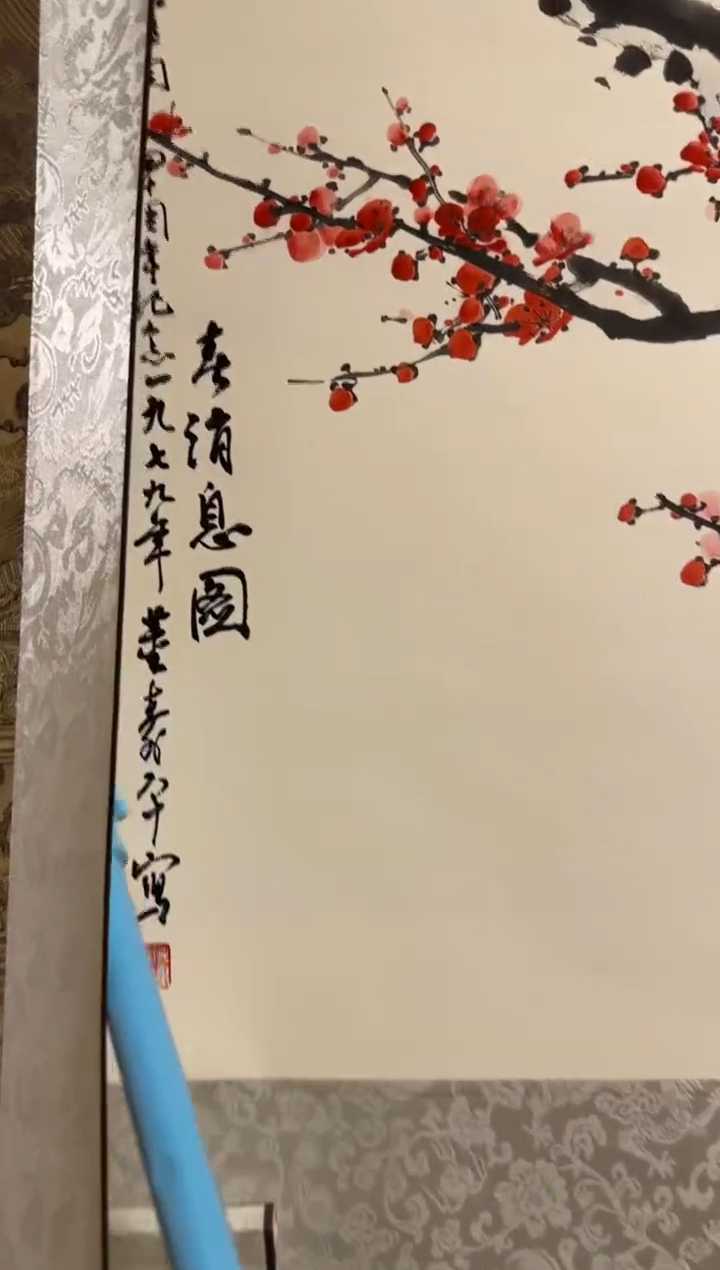 春消息圖
周年纪念一九七九年董寿平寫